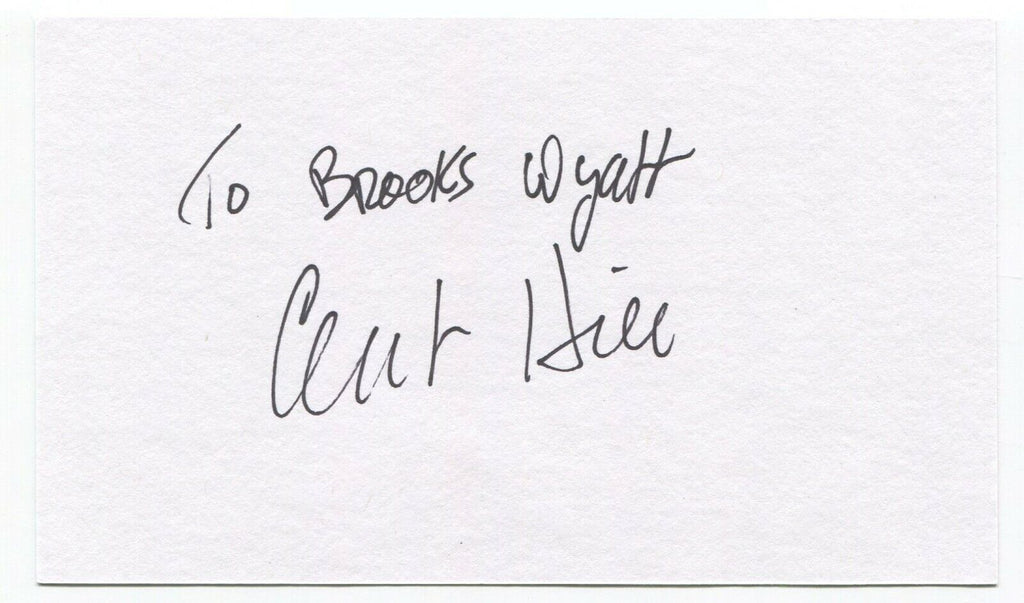 To BROOKS Wyatt
Clint Hill